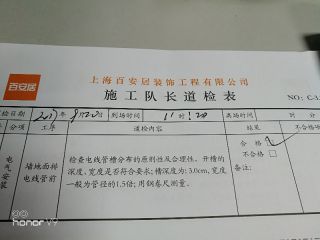 百安居
上海百安居装饰工程有限公司
施工队长道检表
NO: C-1
检日期 2017年8月20日 到场时间 11时20 离场时间 时 分
号 分项 工序 道检内容 结果
电气安装 墙地面料电线管前 检查电线管槽分布的原则性及合理性。开槽的深度、宽度是否符合要求；槽深度为：3.0cm，宽度一般为管径的1.5倍；用钢卷尺测量。 合格 不合格□
备注：
honor V9